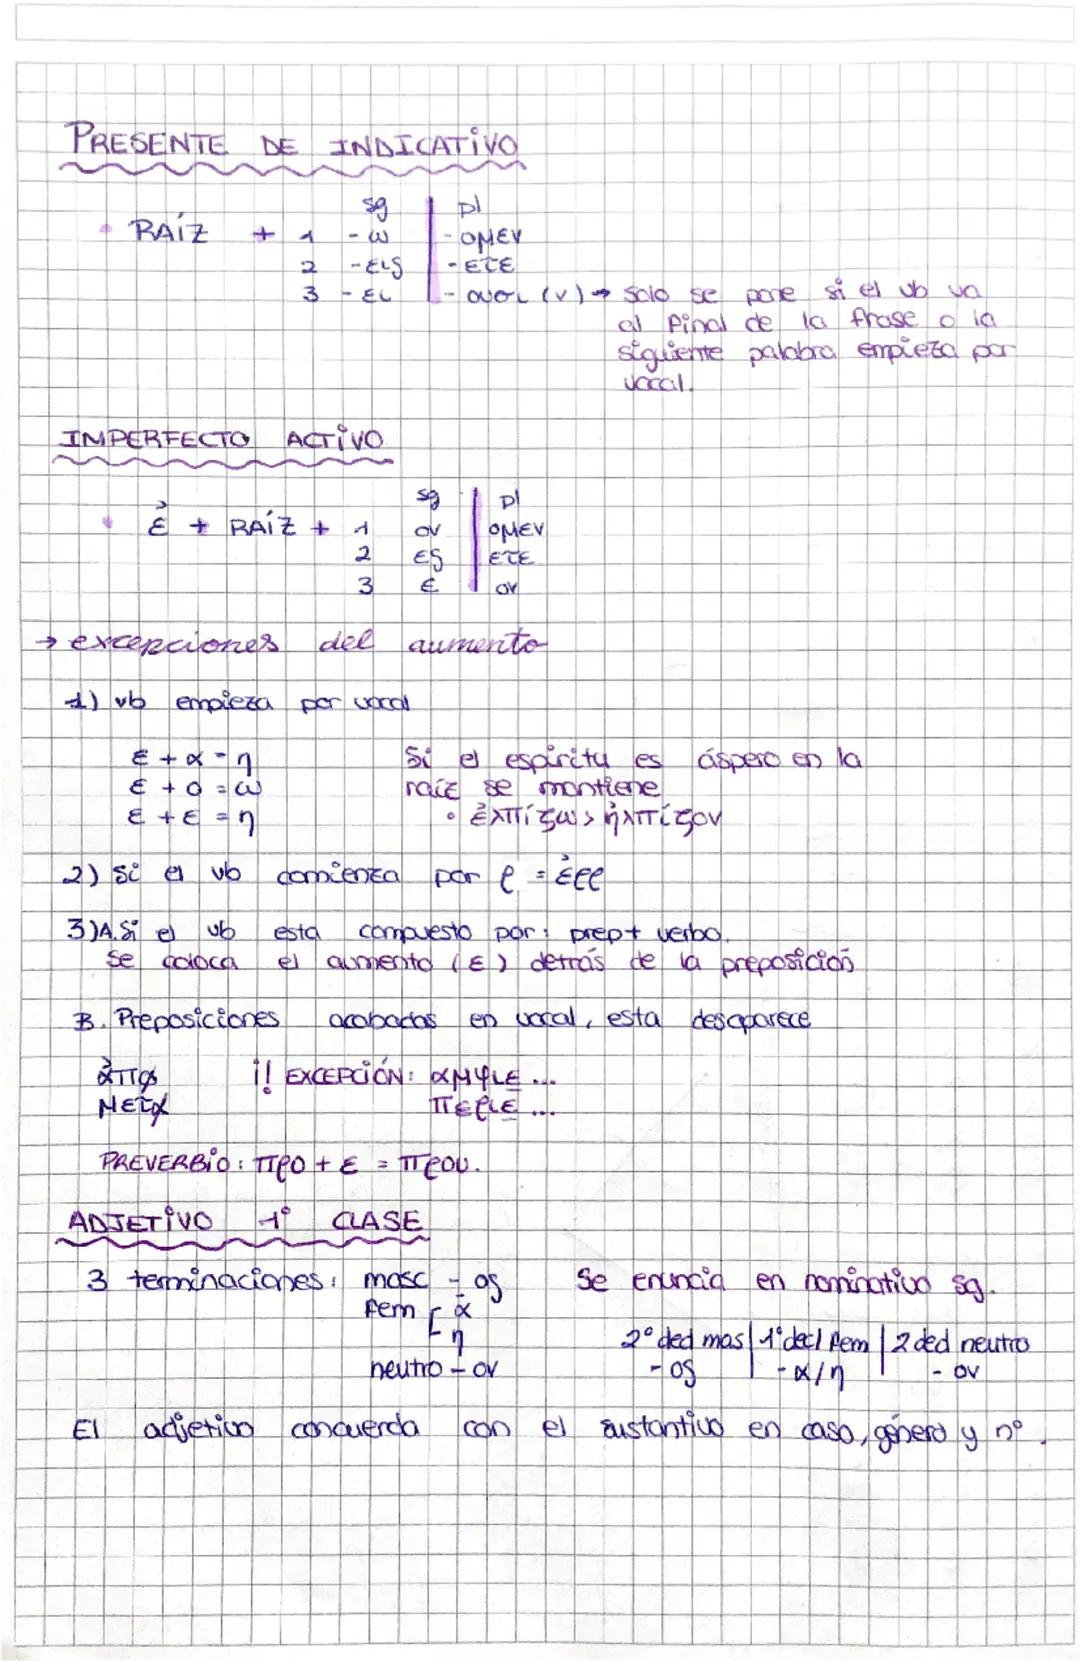 PRESENTE DE INDICATIVO
sg | pl
• RAÍZ + 1 -ω | -ομεν
2 -εις | -ετε
3 -ει | -ουσι (ν) → solo se pone si el vb va
al final de la frase o la
siguiente palabra empieza por
vocal.
IMPERFECTO ACTIVO
sg | pl
• ἐ + RAÍZ + 1 ον | ομεν
2 ες | ετε
3 ε | ον
→ excepciones del aumento
1) vb empieza por vocal
ε + α = η Si el espíritu es áspero en la
ε + ο = ω raíz se mantiene
ε + ε = η • ἐλπίζω > ἠλπίζον
2) Si el vb comienza por ρ = ἐρρ
3) A. Si el vb esta compuesto por: prep + verbo.
Se coloca el aumento (ε) detrás de la preposición
B. Preposiciones acabadas en vocal, esta desaparece
ἀπο ¡! EXCEPCIÓN: αμφιε ...
μετα περιε ...
PREVERBIO: προ + ε = πρου.
ADJETIVO 1º CLASE
3 terminaciones: masc - ος Se enuncia en nominativo sg.
fem [ α
η 2º decl mas | 1º decl fem | 2 decl neutro
neutro - ον -ος | -α/η | -ον
El adjetivo concuerda con el sustantivo en caso, género y nº.